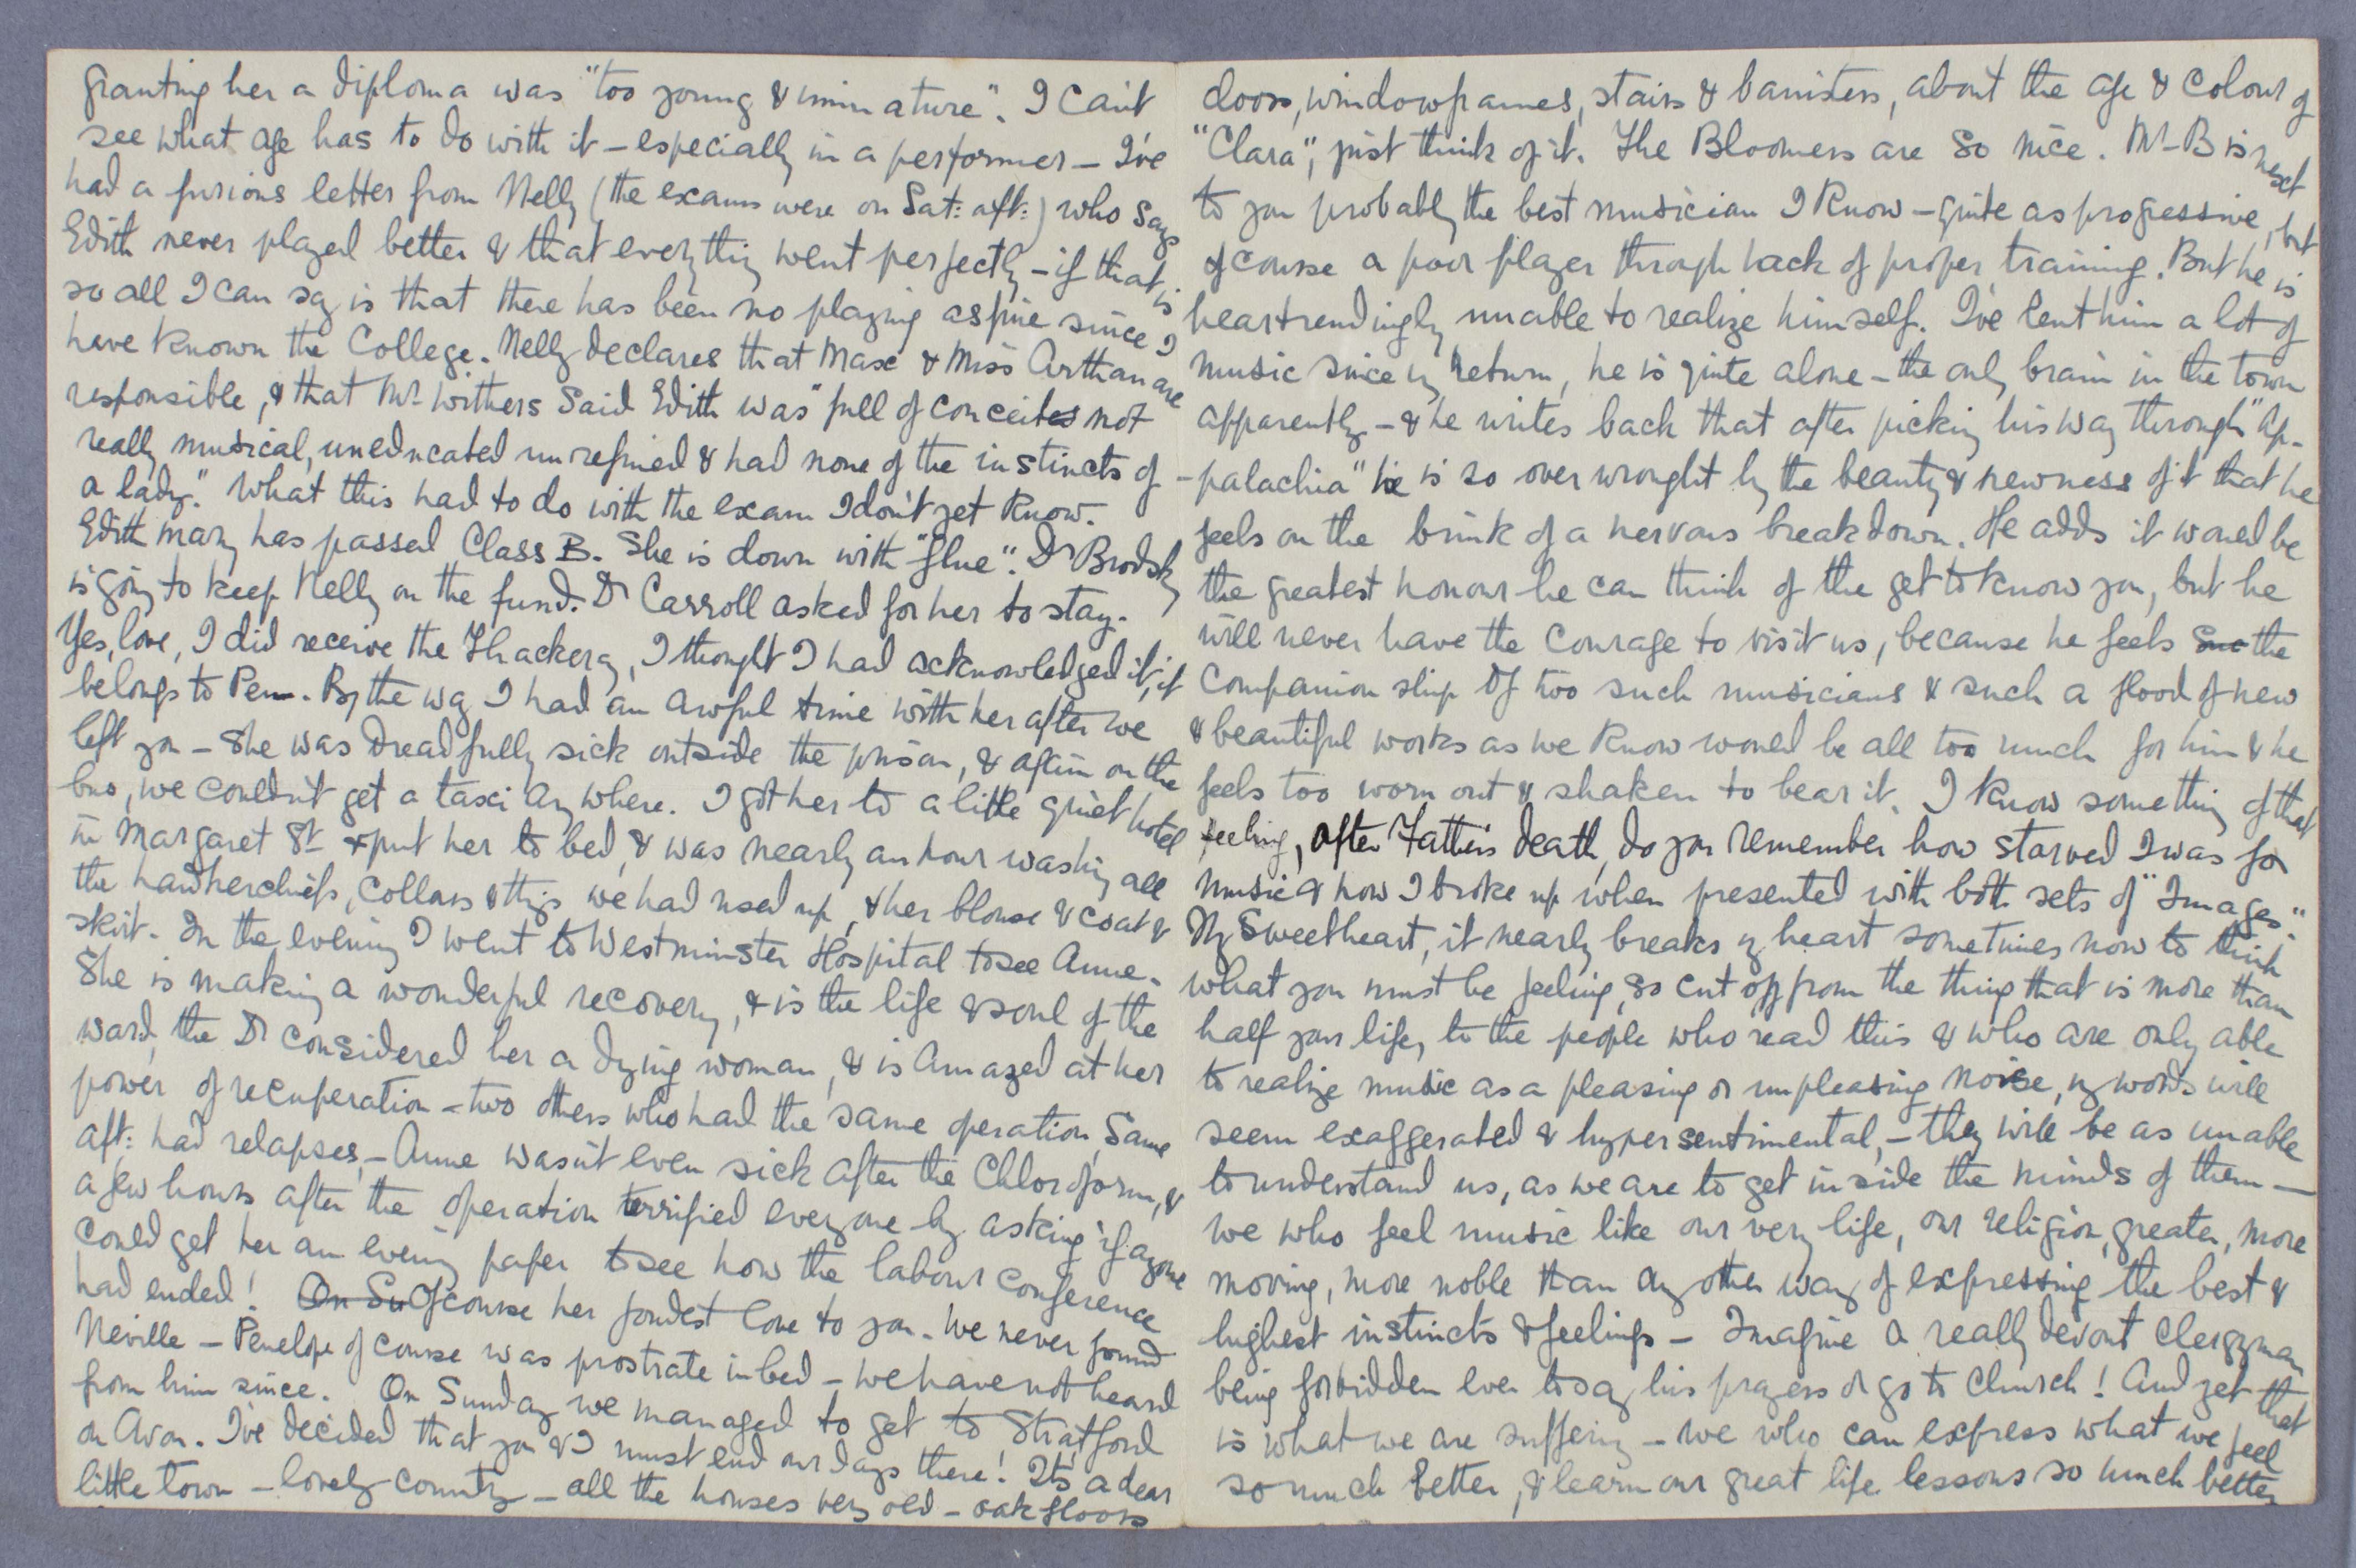 granting her a diploma was "too young & immature". I can't
see what age has to do with it – especially in a performer – I've
had a furious letter from Nelly (the exams were on Sat: aft:) who says
Edith never played better & that everything went perfectly – if that is
so all I can say is that there has been no playing as fine since I
have known the College. Nelly declares that Max & Miss Arthan are
responsible, & that Mr Withers said Edith was "full of conceit not
really musical, uneducated unrefined & had none of the instincts of
a lady." What this had to do with the exam I don't yet know.
Edith Mary has passed Class B. She is down with "flue". Dr Brodsky
is going to keep Nelly on the fund. Dr Carroll asked for her to stay.
Yes, love, I did receive the Thackeray, I thought I had acknowledged it, it
belongs to Pen. By the way I had an awful time with her after we
left you – she was dreadfully sick outside the prison, & again on the
bus, we couldn't get a taxi anywhere. I got her to a little quiet hotel
in Margaret St & put her to bed, & was nearly an hour washing all
the hankerchiefs, collars & things we had used up, & her blouse & coat &
skirt. In the evening I went to Westminster Hospital to see Anne.
She is making a wonderful recovery, & is the life & soul of the
ward, the Dr considered her a dying woman, & is amazed at her
power of recuperation – two others who had the same operation, same
aft: had relapses, – Anne wasn't even sick after the Chloroform, &
a few hours after the operation terrified everyone by asking if anyone
could get her an evening paper to see how the labour conference
had ended! On Su Of course her fondest love to you. We never found
Neville – Penelope of course was prostrate in bed – we have not heard
from him since. On Sunday we managed to get to Stratford
on Avon. I've decided that you & I must end our days there! It's a dear
little town – lovely country – all the houses very old – oak floors
doors, windowframes, stairs & banisters, about the age & colour of
"Clara", just think of it. The Bloomers are so nice. Mr B is next
to you probably the best musician I know – quite as progressive, but
of course a poor player through lack of proper training. But he is
heartrendingly unable to realize himself. I've lent him a lot of
music since my return, he is quite alone – the only brain in the town
apparently – & he writes back that after picking his way through "Ap-
-palachia" he is so over wrought by the beauty & newness of it that he
feels on the brink of a nervous breakdown. He adds it would be
the greatest honour he can think of the get to know you, but he
will never have the courage to visit us, because he feels the
companion ship of two such musicians & such a flood of new
& beautiful works as we know would be all too much for him & he
feels too worn out & shaken to bear it. I know something of that
feeling, after Father's death, do you remember how starved I was for
music & how I broke up when presented with both sets of "Images".
My Sweetheart, it nearly breaks my heart sometimes now to think
what you must be feeling, so cut off from the thing that is more than
half your life, to the people who read this & who are only able
to realize music as a pleasing or unpleasing noise, my words will
seem exaggerated & hypersentimental, – they will be as unable
to understand us, as we are to get inside the minds of them –
we who feel music like our very life, our religion, greater, more
moving, more noble than any other way of expressing the best &
highest instincts & feelings – Imagine a really devout clergyman
being forbidden ever to say his prayers or go to Church! And yet that
is what we are suffering – we who can express what we feel
so much better, & learn our great life lessons so much better